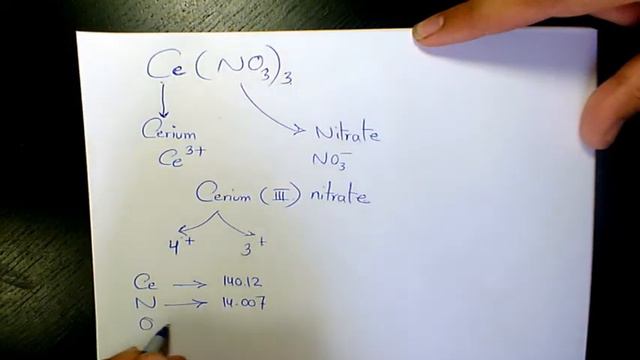 Ce(NO₃)₃
Cerium Nitrate
Ce³⁺ NO₃⁻
Cerium (III) nitrate
4⁺ 3⁺
Ce → 140.12
N → 14.007
O